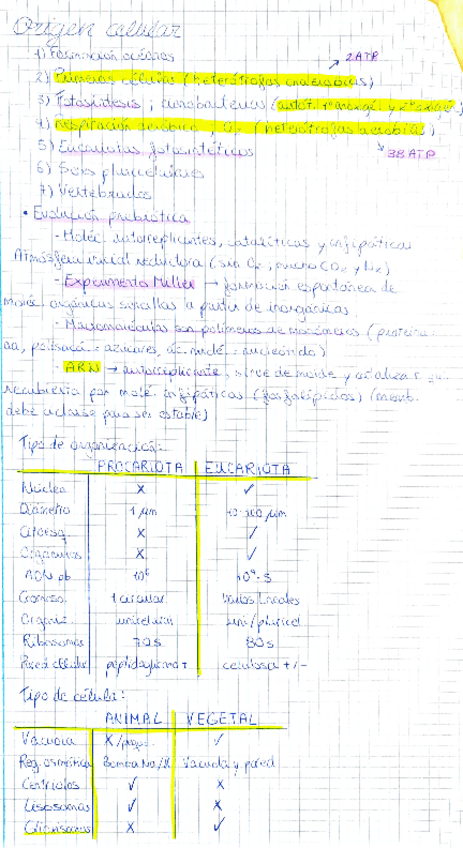 Origen celular
1) Formación océanos
2) Primeras células (heterótrofas anaerobias) → 2 ATP
3) Fotosíntesis; cianobacterias (autót. 1º anoxigé. y 2º oxigén.)
4) Respiración aerobica; O₂ (heterótrofas aerobias) → 38 ATP
5) Eucariotas fotosintéticos
6) Seres pluricelulares
7) Vertebrados
• Evolución prebiótica
- Moléc. autorreplicantes, catalíticas y anfipáticas
Atmósfera inicial reductora (sin O₂; mucho CO₂ y N₂)
- Experimento Miller → formación espontánea de
moléc. orgánicas sencillas a partir de inorgánicas
- Macromoléculas son polímeros de monómeros (proteína:
aa, polisac.: azúcares, ác. nucle.: nucleótido)
- ARN → autorreplicante, sirve de molde y cataliza r
recubierta por moléc. anfipáticas (fosfolípidos) (memb.
debe aclararse para ser estable)
Tipo de organización:
PROCARIOTA EUCARIOTA
Núcleo X ✓
Diámetro 1 μm 10-100 μm
Citoesq. X ✓
Orgánulos X ✓
ADN pb 10⁶
Cromoso. 1 circular varios lineales
Organiz. unicelular uni/pluricel
Ribosomas 70s 80s
Pared celular peptidoglicano + celulosa +/-
Tipo de célula:
ANIMAL VEGETAL
Vacuola X/ ✓
Reg. osmótica Bomba Na/K Vacuola y pared
Centriolos ✓ X
Lisosomas ✓ X
Glioxisomas X ✓